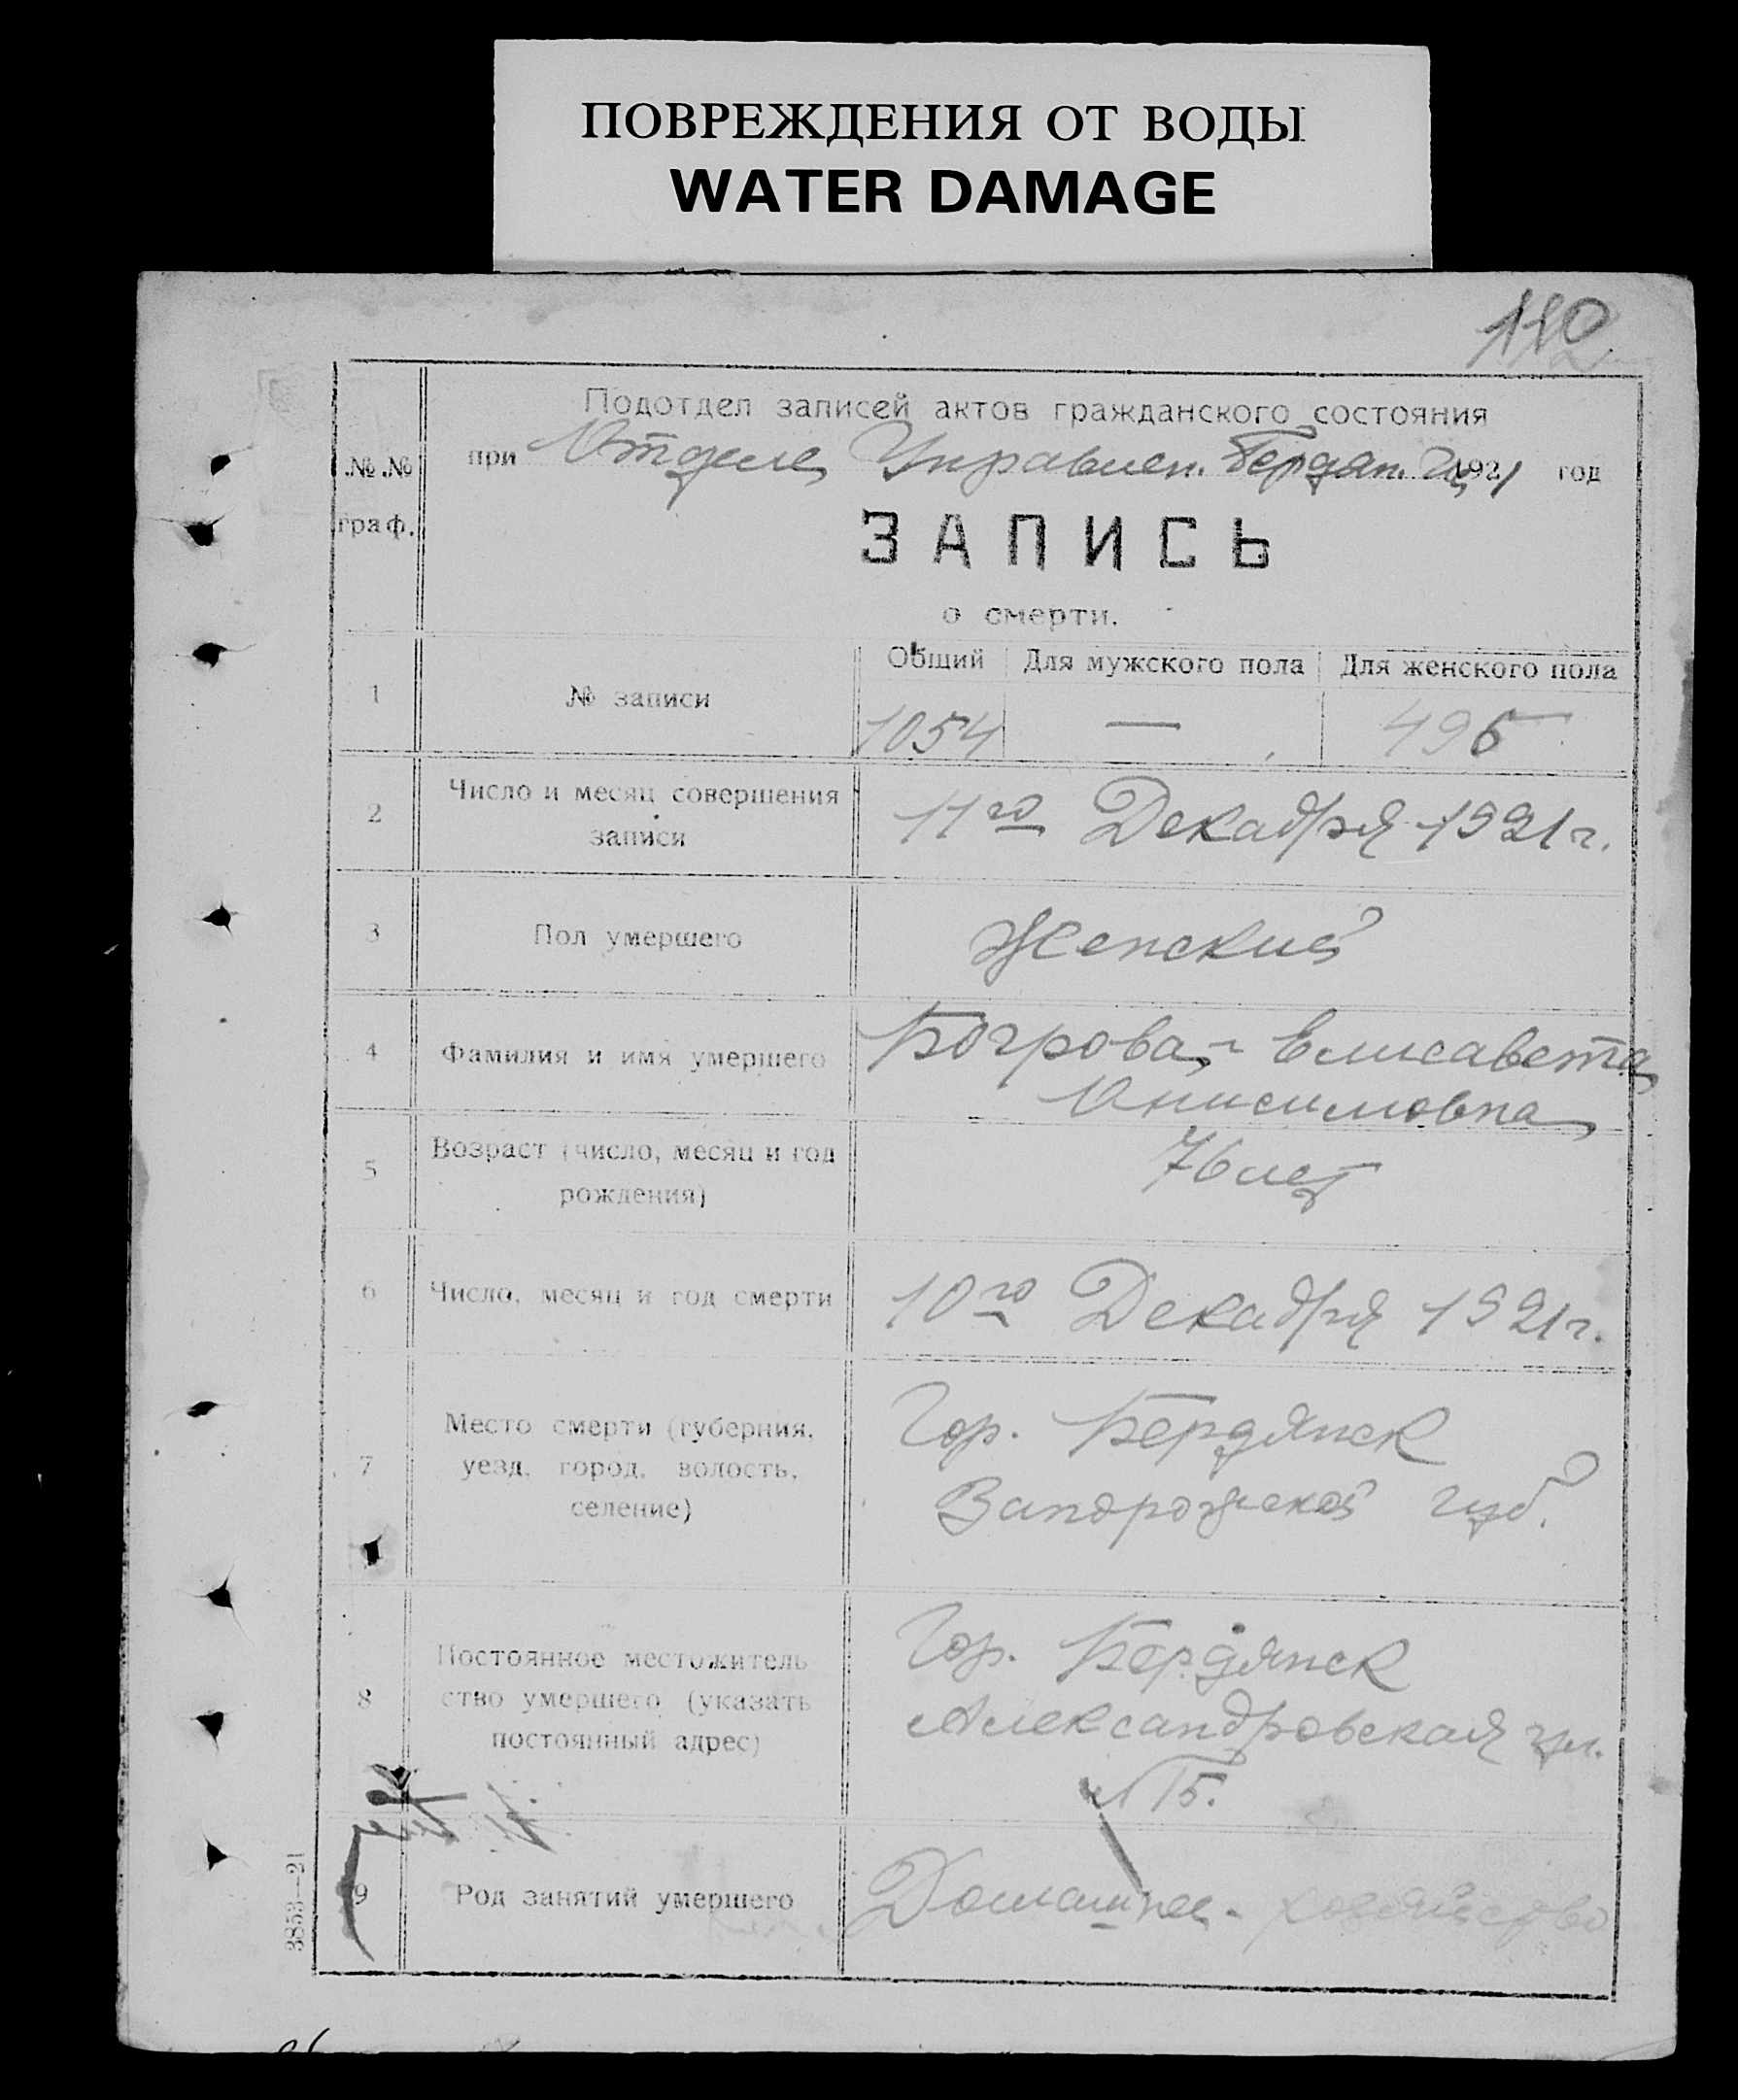 ПОВРЕЖДЕНИЯ ОТ ВОДЫ
WATER DAMAGE
112
Подотдел записей актов гражданского состояния
№ № при Отделе Управлен. Бердян. 1921 год
граф.
ЗАПИСЬ
о смерти.
Общий Для мужского пола Для женского пола
1 № записи 1054 — 495
2 Число и месяц совершения записи 11го Декабря 1921 г.
3 Пол умершего Женский
4 Фамилия и имя умершего Богрова Елисавета
Онисимовна
5 Возраст (число, месяц и год рождения) 76 лет
6 Число, месяц и год смерти 10го Декабря 1921 г.
7 Место смерти (губерния, Гор. Бердянск
уезд, город, волость, Запорожской губ.
селение)
8 Постоянное местожитель Гор. Бердянск
ство умершего (указать Александровская ул.
постоянный адрес) № 15.
9 Род занятий умершего Домашнее хозяйство
3853—21